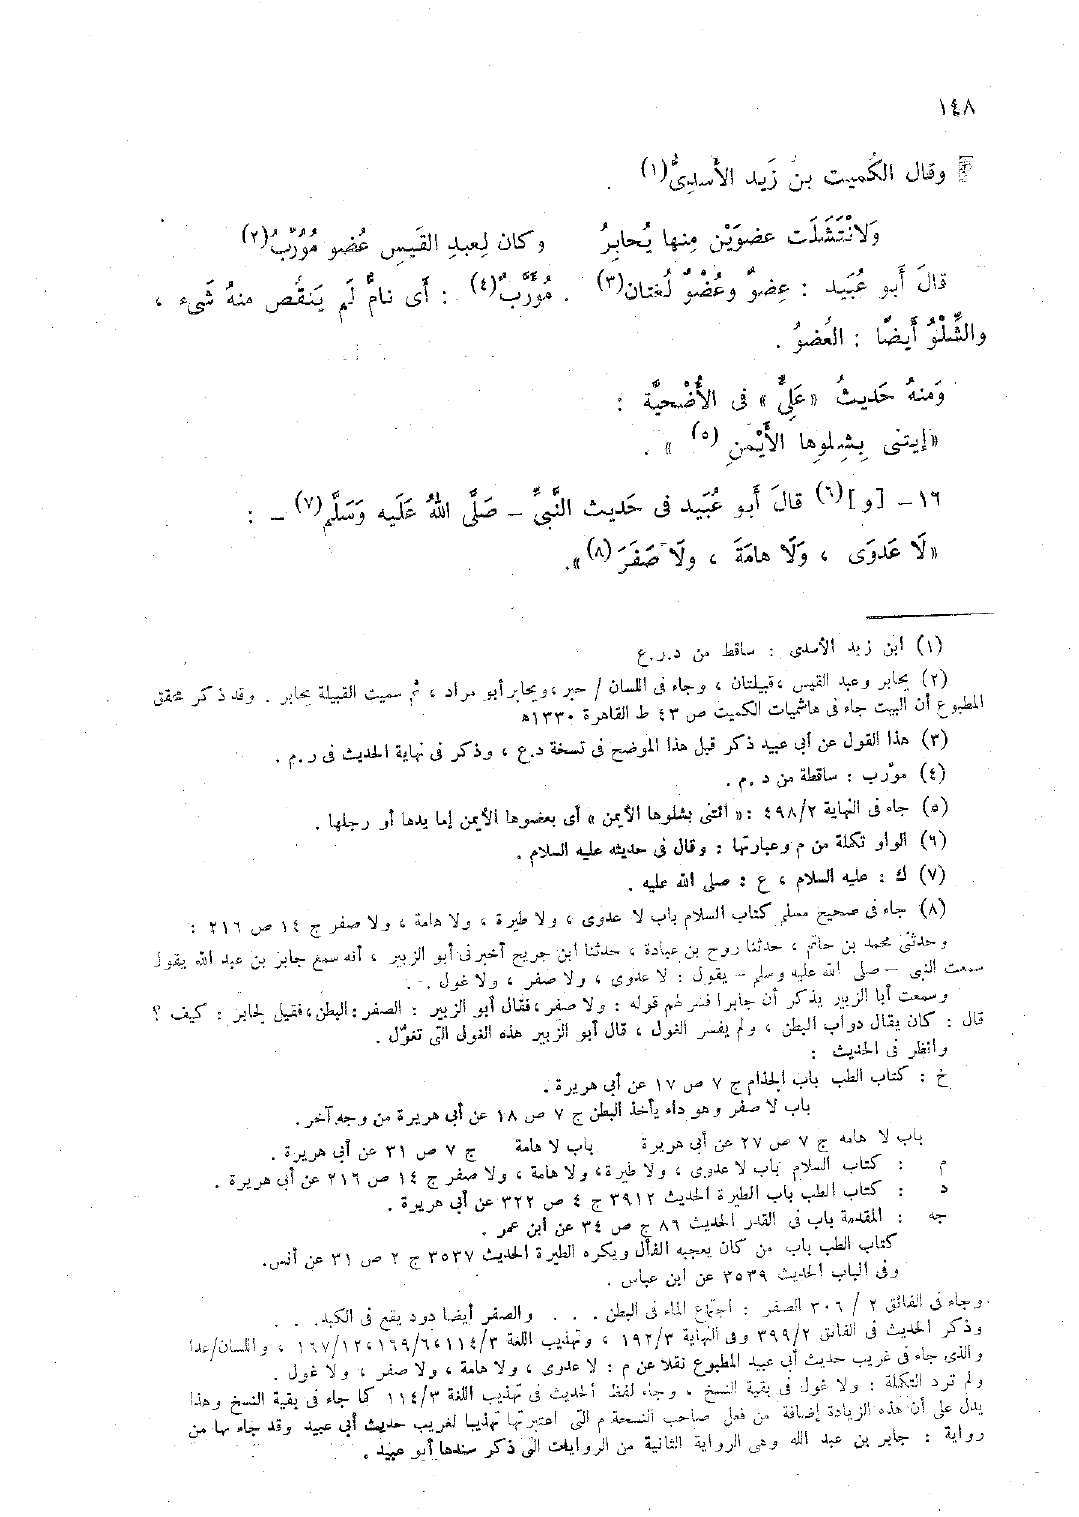 ١٤٨
وقال الكُميت بنُ زَيد الأَسدِىُّ(١) .
وَلانْتَشَلَت عضوَيْن مِنها يُحابِرُ وكان لِعبدِ القَيسِ عُضو مُوُرَّبُ(٢)
قالَ أَبو عُبَيد : عِضوٌ وعُضْوٌ لُغتان(٣) . مُوَّرَّبٌ(٤) : أَى تامٌّ لَم يَنقُص منهُ شَىء ،
والشِّلْوُ أَيضًا : العُضوُ .
وَمنهُ حَديثُ «عَلِىٍّ» فى الأُضْحيَّة :
«إيتنى بِشِلوِها الأَيْمنِ (٥) » .
١٦ – [و](٦) قالَ أَبو عُبَيد فى حَديث النَّبىِّ – صَلَّى اللهُ عَلَيه وَسَلَّم(٧) – :
«لَا عَدوَى ، وَلَا هامَةَ ، ولَا صَفَرَ (٨)».
(١) ابن زيد الأسدى : ساقط من د.ر.ع
(٢) يحابر وعبد القيس ، قبيلتان ، وجاء فى اللسان / حبر ، ويحابر أبو مراد ، ثم سميت القبيلة يحابر . وقد ذكر محقق
المطبوع أن البيت جاء فى هاشميات الكميت ص ٤٣ ط القاهرة ١٣٣٠ه
(٣) هذا القول عن أبى عبيد ذكر قبل هذا الموضع فى نسخة د.ع ، وذكر فى نهاية الحديث فى ر.م .
(٤) مؤرب : ساقطة من د .م .
(٥) جاء فى النهاية ٤٩٨/٢ : « ائتنى بشلوها الأيمن » أى بعضوها الأيمن إما يدها أو رجلها .
(٦) الواو تكلة من م وعبارتها : وقال فى حديثه عليه السلام .
(٧) ك : عليه السلام ، ع : صلى الله عليه .
(٨) جاء فى صحيح مسلم كتاب السلام باب لا عدوى ، ولا طيرة ، ولا هامة ، ولا صفر ج ١٤ ص ٢١٦ :
وحدثنى محمد بن حاتم ، حدثنا روح بن عبادة ، حدثنا ابن جريج أخبرنى أبو الزبير ، أنه سمع جابر بن عبد الله يقول
سمعت النبى – صلى الله عليه وسلم – يقول : لا عدوى ، ولا صفر ، ولا غول .
وسمعت أبا الزبير يذكر أن جابرا فسر لهم قوله : ولا صفر ، فقال أبو الزبير : الصفر : البطن ، فقيل لجابر : كيف ؟
قال : كان يقال دواب البطن ، ولم يفسر الغول ، قال أبو الزبير هذه الغول التى تغوّل .
وانظر فى الحديث :
خ : كتاب الطب باب الجذام ج ٧ ص ١٧ عن أبى هريرة .
باب لا صفر وهو داء يأخذ البطن ج ٧ ص ١٨ عن أبى هريرة من وجه آخر .
باب لا هامه ج ٧ ص ٢٧ عن أبى هريرة باب لا هامة ج ٧ ص ٣١ عن أبى هريرة .
م : كتاب السلام باب لا عدوى ، ولا طيرة ، ولا هامة ، ولا صفر ج ١٤ ص ٢١٦ عن أبى هريرة .
د : كتاب الطب باب الطيرة الحديث ٣٩١٢ ج ٤ ص ٣٢٢ عن أبى هريرة .
جه : المقدمة باب فى القدر الحديث ٨٦ ج ص ٣٤ عن ابن عمر .
كتاب الطب باب من كان يعجبه الفأل ويكره الطيرة الحديث ٣٥٣٧ ج ٢ ص ٣١ عن أنس .
وفى الباب الحديث ٣٥٣٩ عن ابن عباس .
وجاء فى الفائق ٢ / ٣٠٦ الصفر : اجتماع الماء فى البطن . . . والصفر أيضا دود يقع فى الكبد . . .
وذكر الحديث فى الفائق ٣٩٩/٢ وفى النهاية ١٩٢/٣ ، وتهذيب اللغة ١١٤/٣ ، ١٦٩/٦ ، ١٦٧/١٢ ، واللسان/عدا
والذى جاء فى غريب حديث أبى عبيد المطبوع نقلا عن م : لا عدوى ، ولا هامة ، ولا صفر ، ولا غول .
ولم ترد التكملة : ولا غول فى بقية النسخ ، وجاء لفظ الحديث فى تهذيب اللغة ١١٤/٣ كما جاء فى بقية النسخ وهذا
يدل على أن هذه الزيادة إضافة من فعل صاحب النسخة م التى اعتبرتها تهذيبا لغريب حديث أبى عبيد وقد جاء بها من
رواية : جابر بن عبد الله وهى الرواية الثانية من الروايات التى ذكر سندها أبو عبيد .